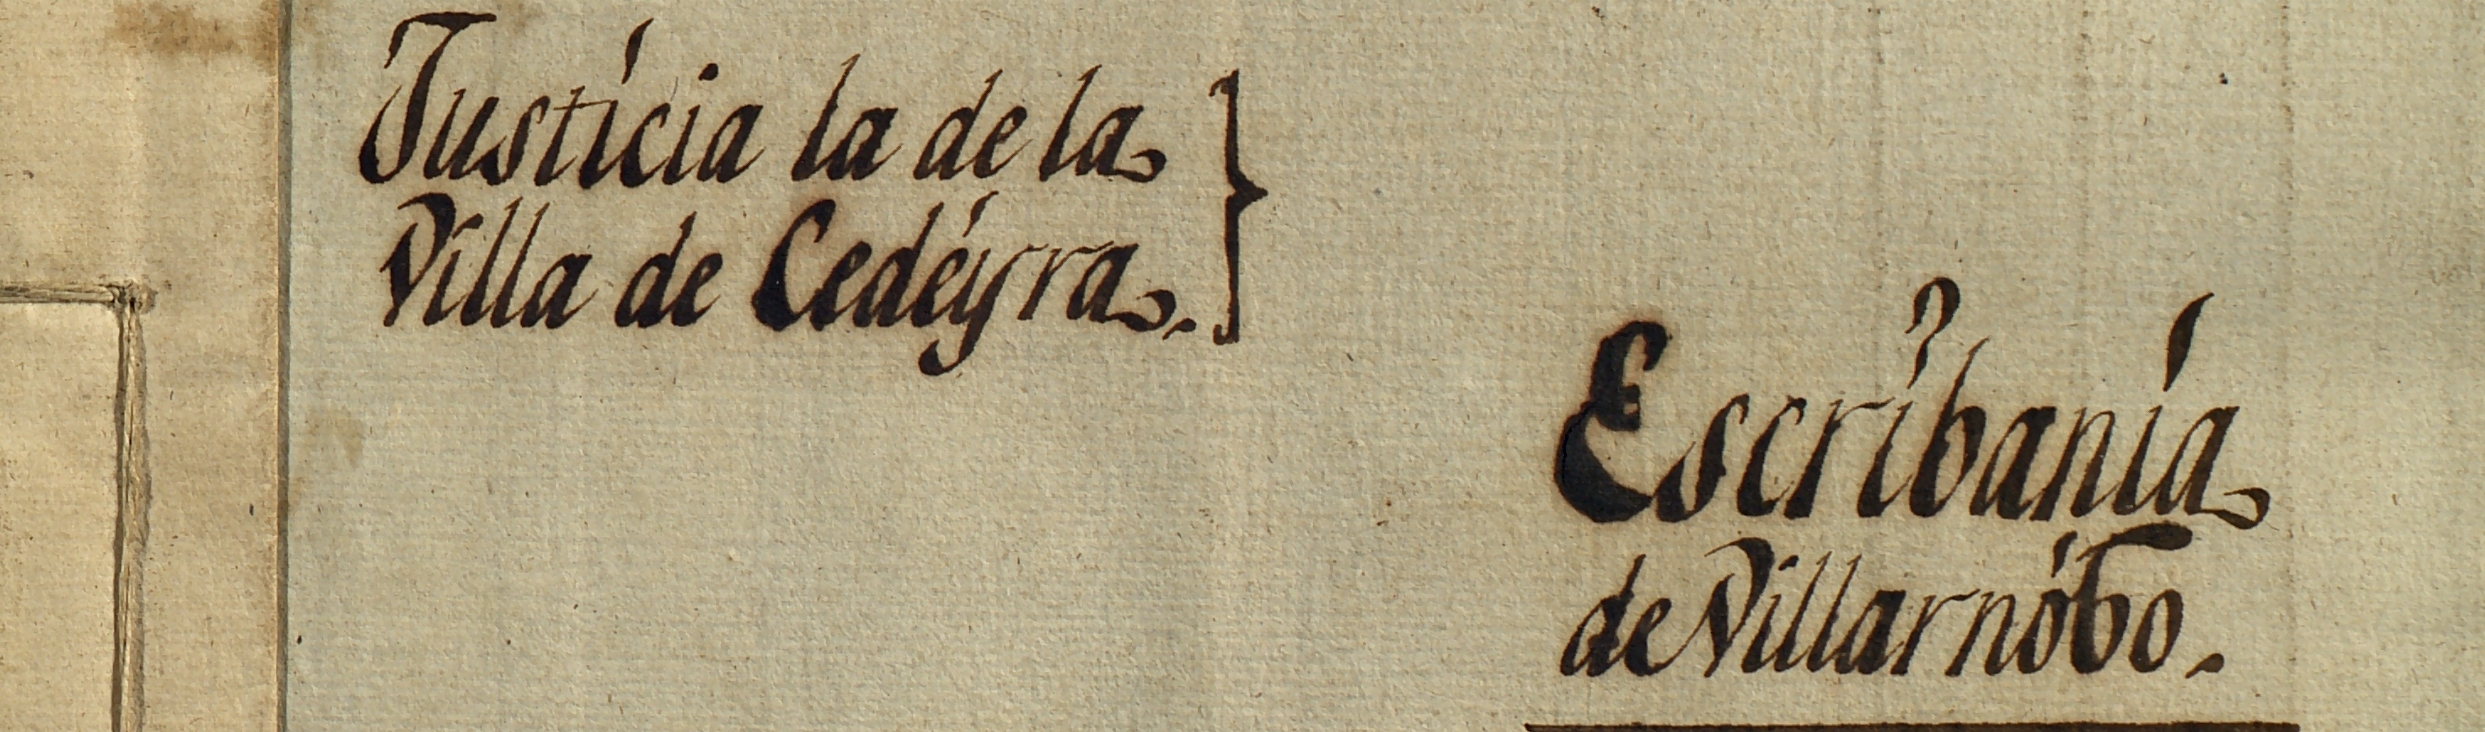 Justicia la de la
Villa de Cedéyra.
Escribania
de Villarnóvo.